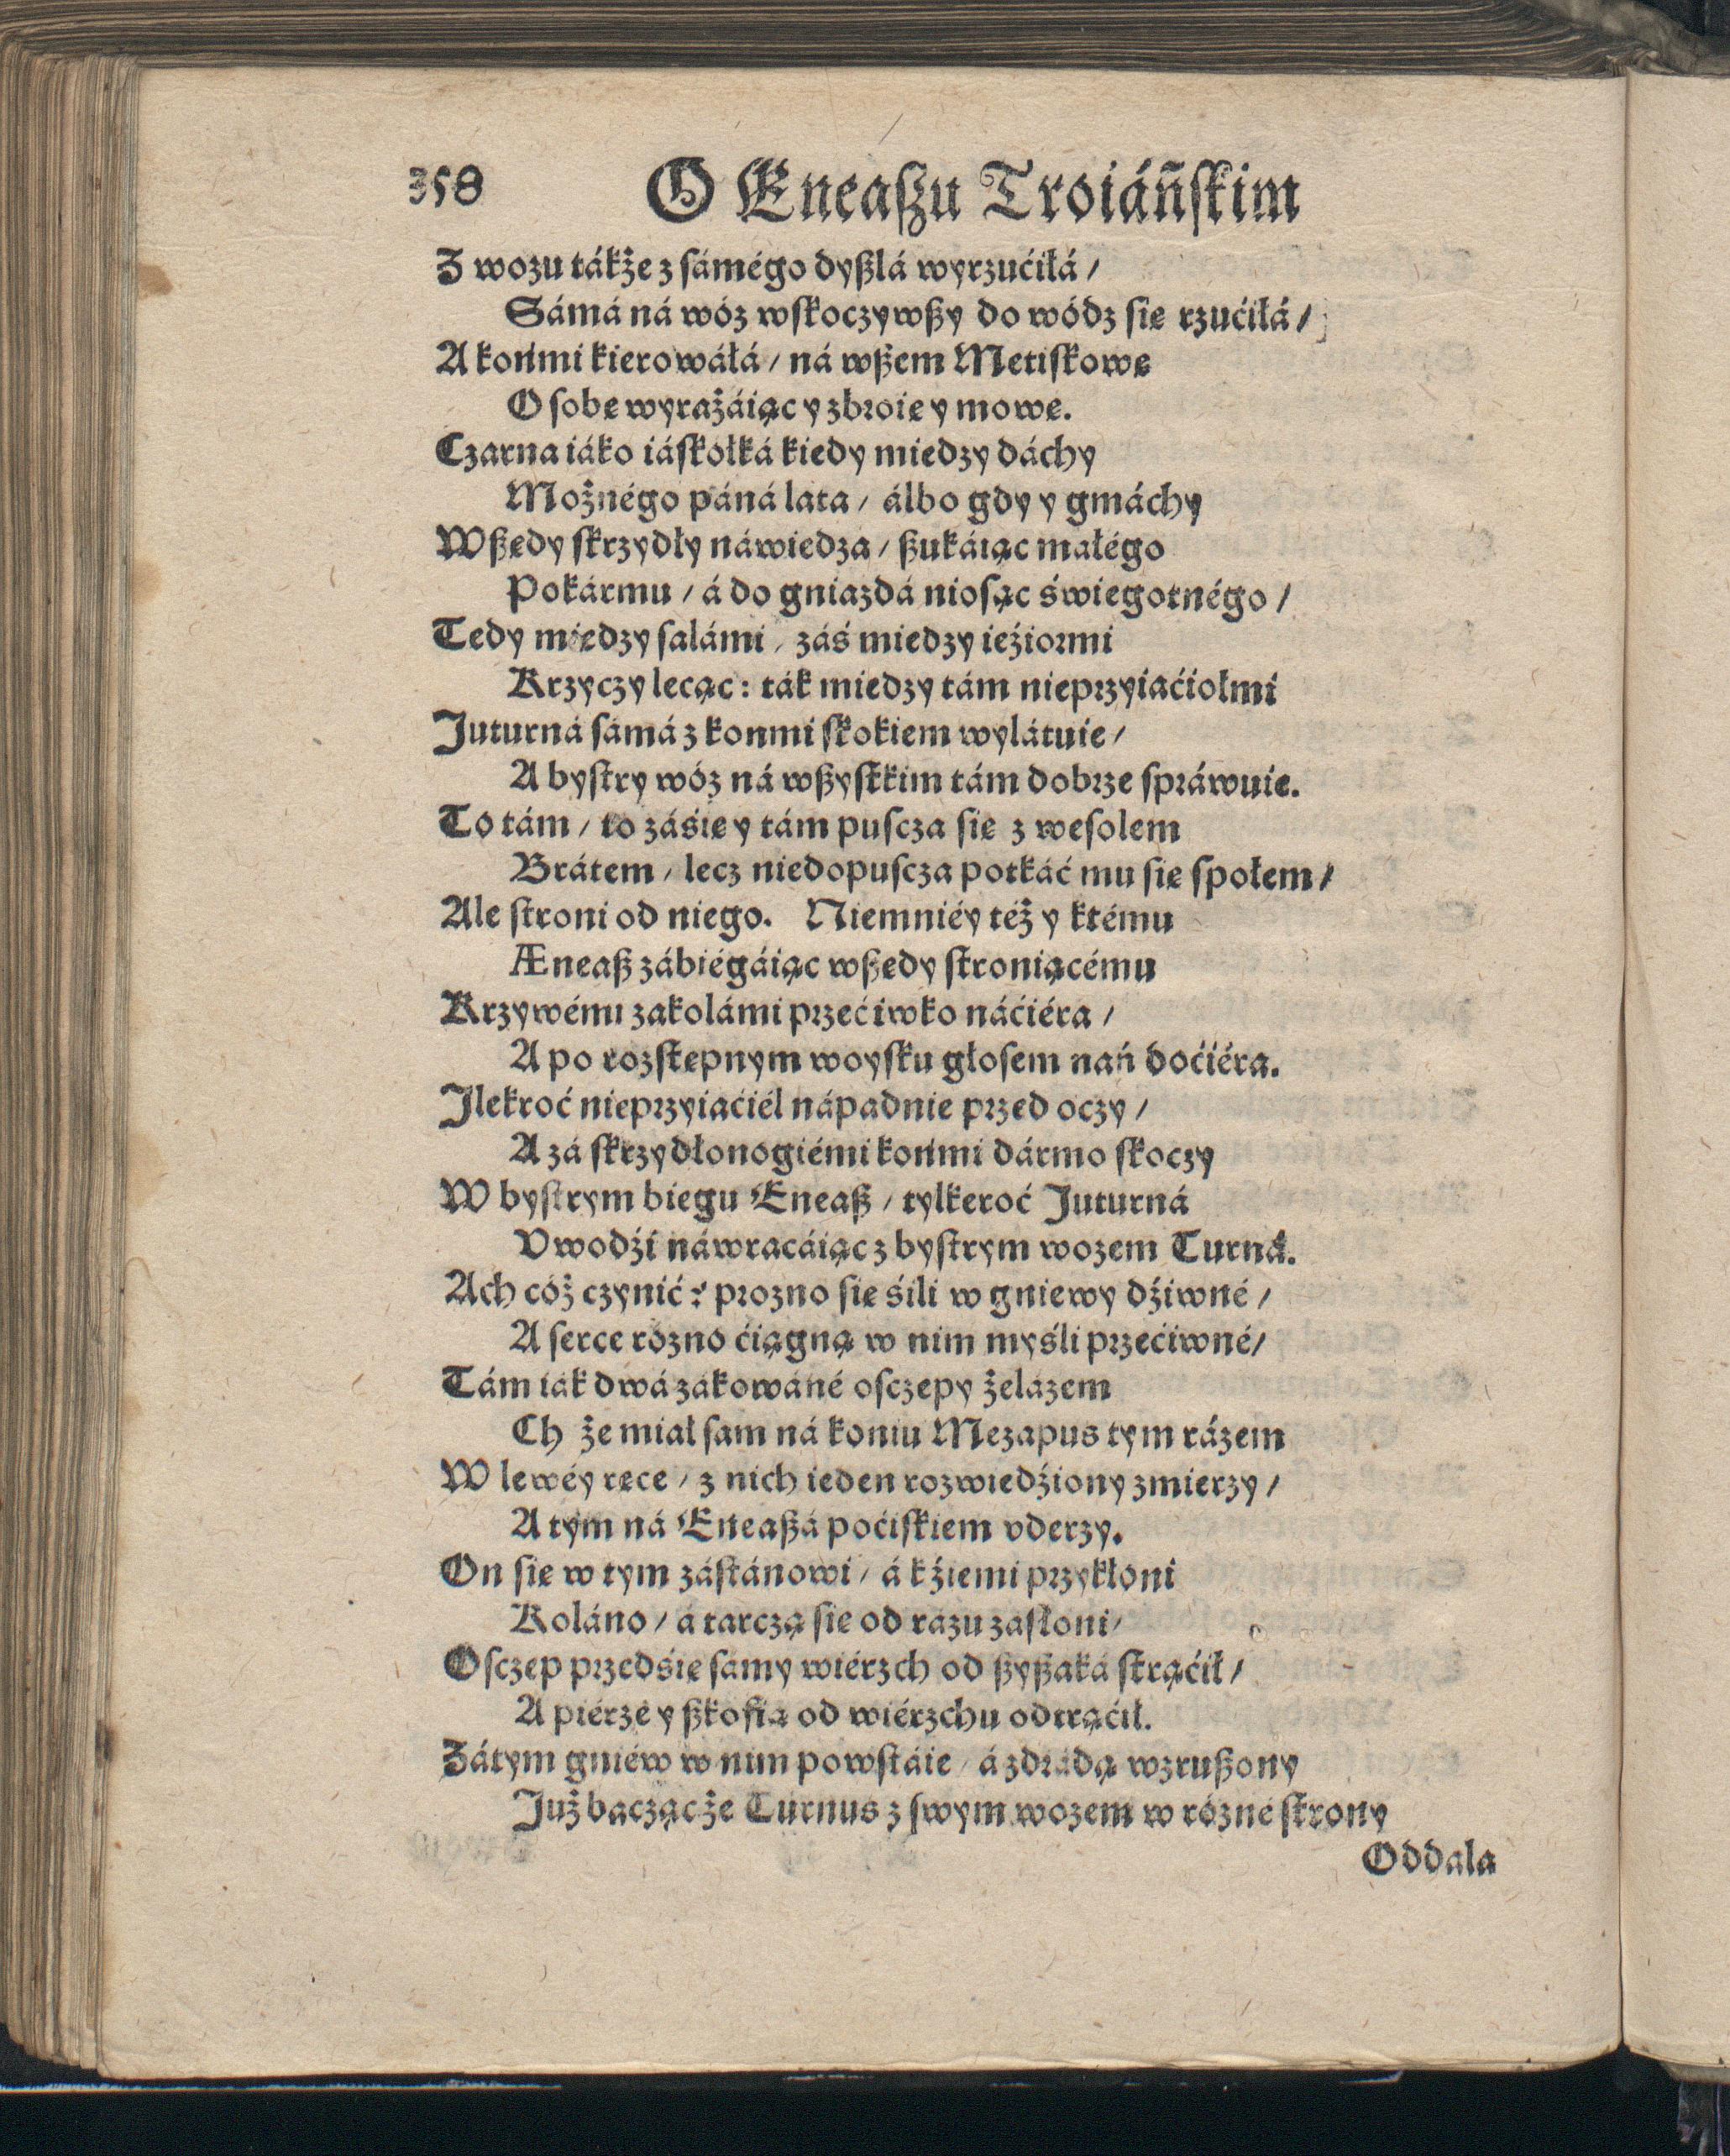 358 O Eneaſzu Troiáñſkim
Z wozu tákże z ſámégo dyßlá wyrzućiłá /
Sámá ná wóz wſkoczywßy do wódz ſię rzućiłá /
A końmi kierowáłá / ná wßem Metiſkowę
Oſobę wyrażáiąc y zbroię y mowę.
Czarna iáko iáſkołká kiedy miedzy dáchy
Możnégo páná lata / álbo gdy y gmáchy
Wßędy ſkrzydły náwiedza / ßukáiąc małégo
Pokármu / á do gniazdá nioſąc świegotnégo /
Tedy miedzy ſalámi / záś miedzy ieźiormi
Krzyczy lecąc: ták miedzy tám nieprzyiaćiołmi
Juturná ſámá z konmi ſkokiem wylátuie /
A byſtry wóz ná wßyſtkim tám dobrze ſpráwuie.
To tám / to záśię y tám puſcza ſię z weſołem
Brátem / lecz niedopuſcza potkáć mu ſię ſpołem /
Ale ſtroni od niego. Niemniéy też y ktému
Æneaß zábiégáiąc wßędy ſtroniącému
Krzywémi zakolámi przećiwko náćiéra /
A po rozſtępnym woyſku głoſem nań doćiéra.
Jlekroć nieprzyiaćiél nápadnie przed oczy /
A zá ſkrzydłonogiémi końmi dármo ſkoczy
W byſtrym biegu Eneaß / tylkeroć Juturná
Vwodźi náwracáiąc z byſtrym wozem Turná.
Ach cóż czynić? prozno ſię śili w gniewy dźiwné /
A ſerce rózno ćiągną w nim myśli przećiwné /
Tám iák dwá zákowáné oſczepy żelázem
Ch że miał ſam ná koniu Mezapus tym rázem
W lewéy ręce / z nich ieden rozwiedźiony zmierzy /
A tym ná Eneaßá poćiſkiem vderzy.
On ſię w tym záſtánowi / á k źiemi przykłoni
Koláno / á tarczą ſię od rázu zaſłoni /
Oſczep przedśię ſámy wiérzch od ßyßaká ſtrąćił /
A piérzé y ßkofią od wiérzchu odtrąćił.
Zátym gniéw w nim powſtáie / á zdrádą wzrußony
Już bacząc że Turnus z ſwym wozem w rózné ſtrony
Oddala